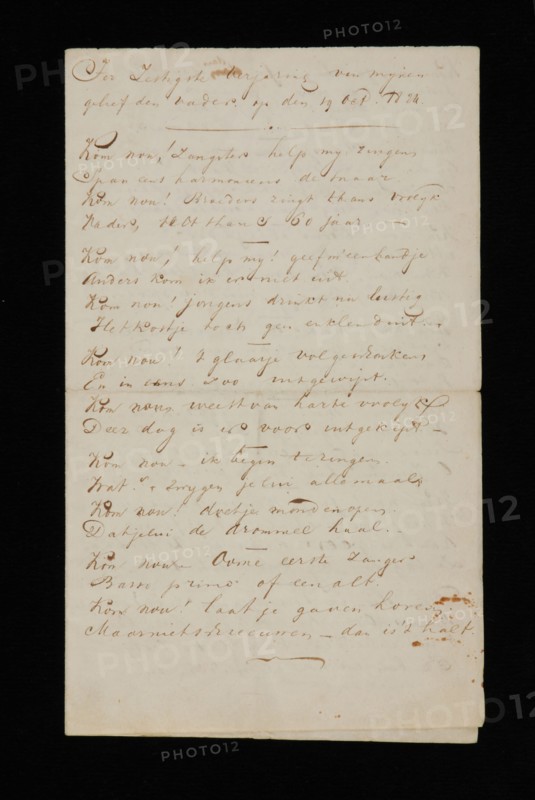 Ter Zestigste Verjaring van mijnen
geliefden vader, op den 19 Oct. 1824.
Kom nou! Zangster help my zingen
Span eens harmonieus de snaar
Kom nou! Broeders zingt thans vrolyk
Vader, telt thans 60 jaar
Kom nou! help my! geef m'een handje
Anders kom ik er niet uit.
Kom nou! jongens drinkt nu lustig
Het kostje toch geen enklen duit
Kom nou! 't glaasje vol geschonken
En in eens zoo uitgewipt.
Kom nou weest van harte vrolyk
Deze dag is er voor uitgekipt.
Kom nou - ik begin te zingen
Wat? zwygen jelui allemaal
Kom nou! doet je monden open
Dat jelui de drommel haal.
Kom nou Oome eerste Zanger
Basso primo of een alt.
Kom nou! laat je gaven hooren
Maar niet schreeuwen - dan is't halt.
PHOTO12